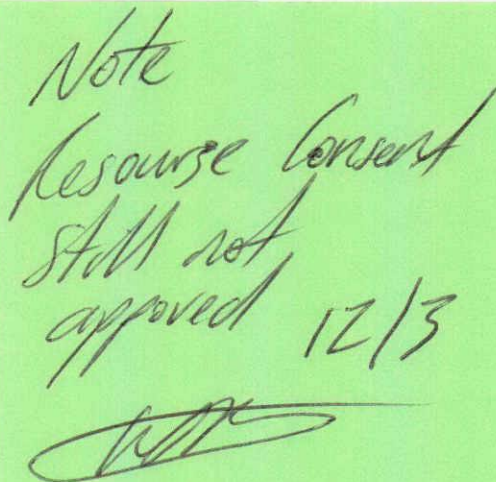 Note
Resourse Consent
still not
appoved 12/3